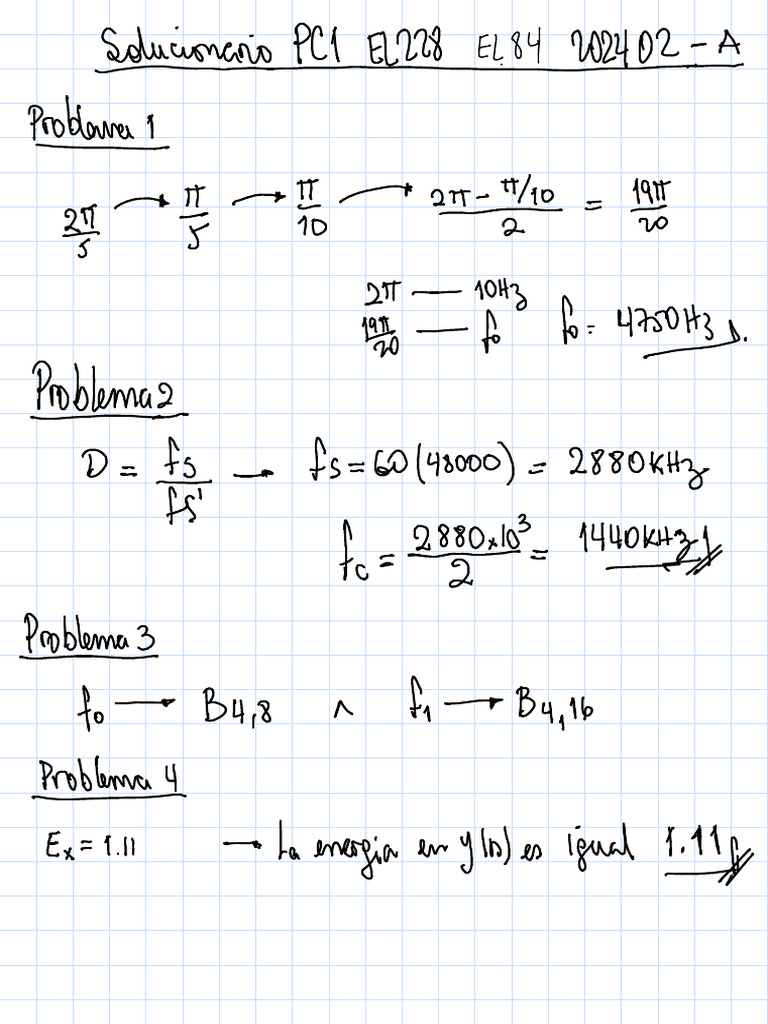 Solucionario PC1 EL228 EL84 202402 - A
Problema 1
2π/5 → π/5 → π/10 → (2π - π/10)/2 = 19π/20
2π — 10Hz
19π/20 — fo fo = 4750Hz
Problema 2
D = fs/fs' → fs = 60(48000) = 2880KHz
fc = 2880x10³/2 = 1440KHz
Problema 3
fo → B4,8 ∧ f1 → B4,16
Problema 4
Ex = 1.11 → La energia en y(n) es igual 1.11